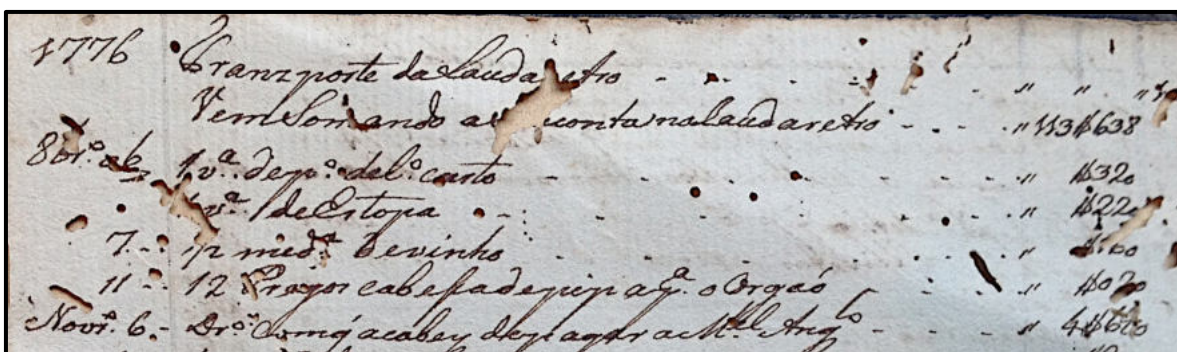 1776 Tranzporte da Lauda retro
Vem Somando a conta na Lauda retro 113$638
8br.o 1 v.a de p.o de l.o curto $320
v.a de Estopa $220
7 1/2 med.a de vinho
11 12 Pregos cabessa de p.a o Orgaó $020
Novr.o 6 Dr.o Com q acabey de pagar a M.el Ang.o